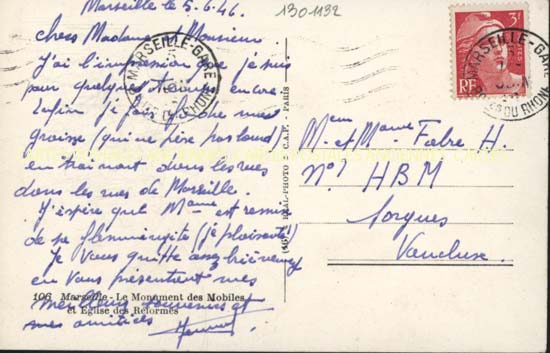 Marseille le 5.6.46.
1301132
chers Madame et Monsieur
J'ai l'impression que je suis
ici pour quelques temps encore.
Enfin je fais
graisse (qui ne pèse pas lourd)
en traînant dans les rues
dans les rues de Marseille.
J'espère que Mame est remis
de sa flemmingite (je plaisante!)
Je vous quitte assez brièvement
en vous présentant mes
meilleurs souvenirs et
mes amitiés
106 Marseille - Le Monument des Mobiles
et Eglise des Réformés
REAL-PHOTO C.A.P. - PARIS
MARSEILLE-GARE
BCHES DU RHONE
3F
RF
MARSEILLE-GARE
BCHES DU RHONE
Mme et Mame Fabre H.
N°1 HBM
Sorgues
Vaucluse